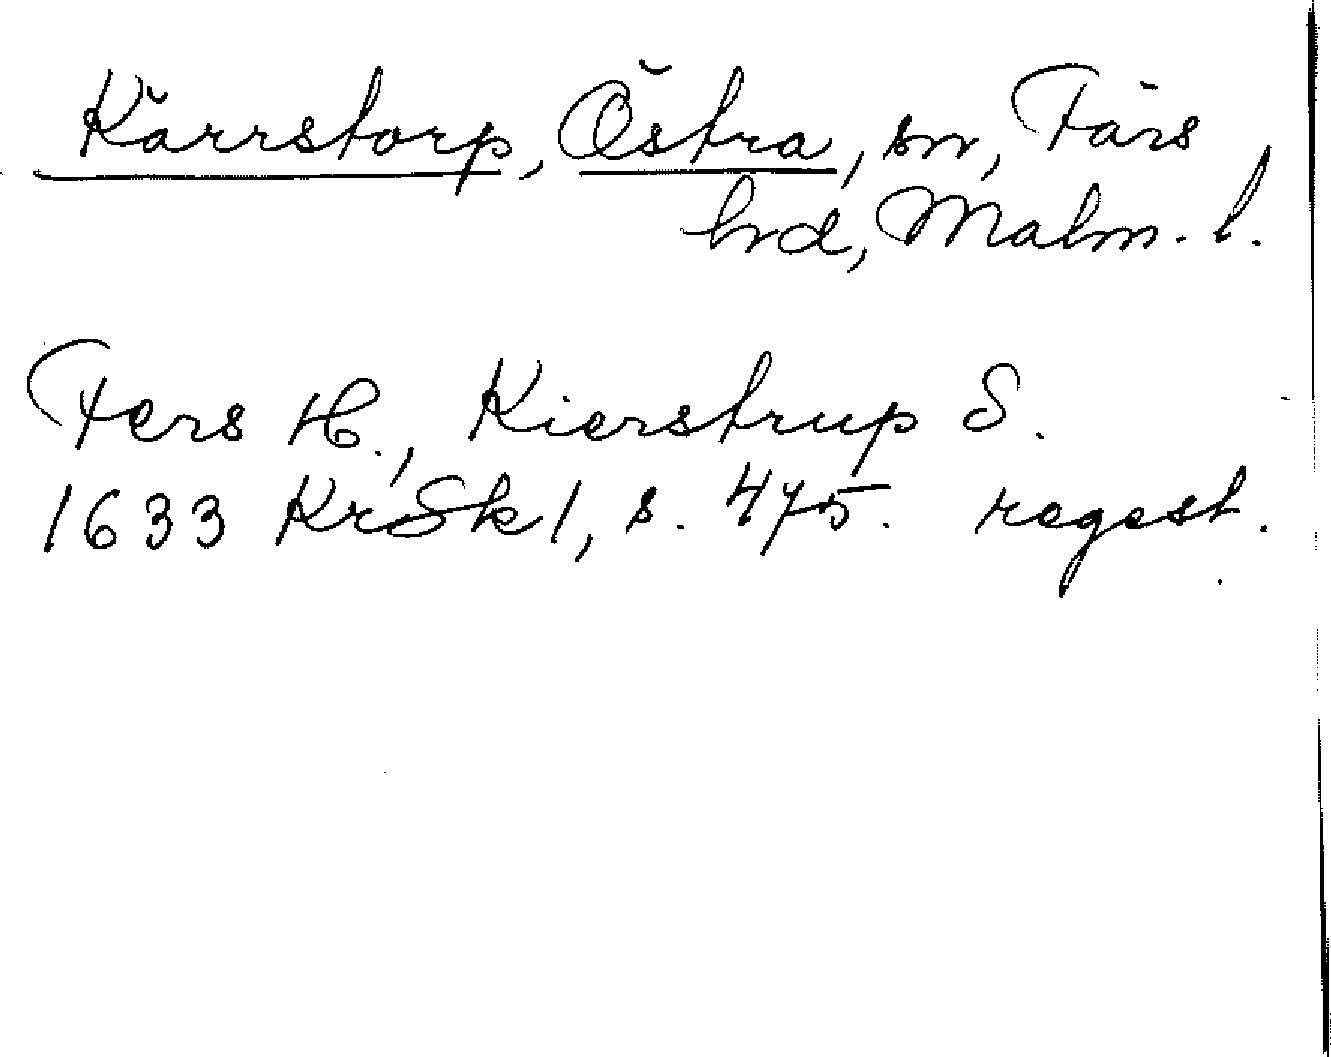 Kärrstorp, Östra, sn, Färs
hrd, Malm. l.
Fers H., Kierstrup S.
1633 KrSk 1, s. 475. regest.